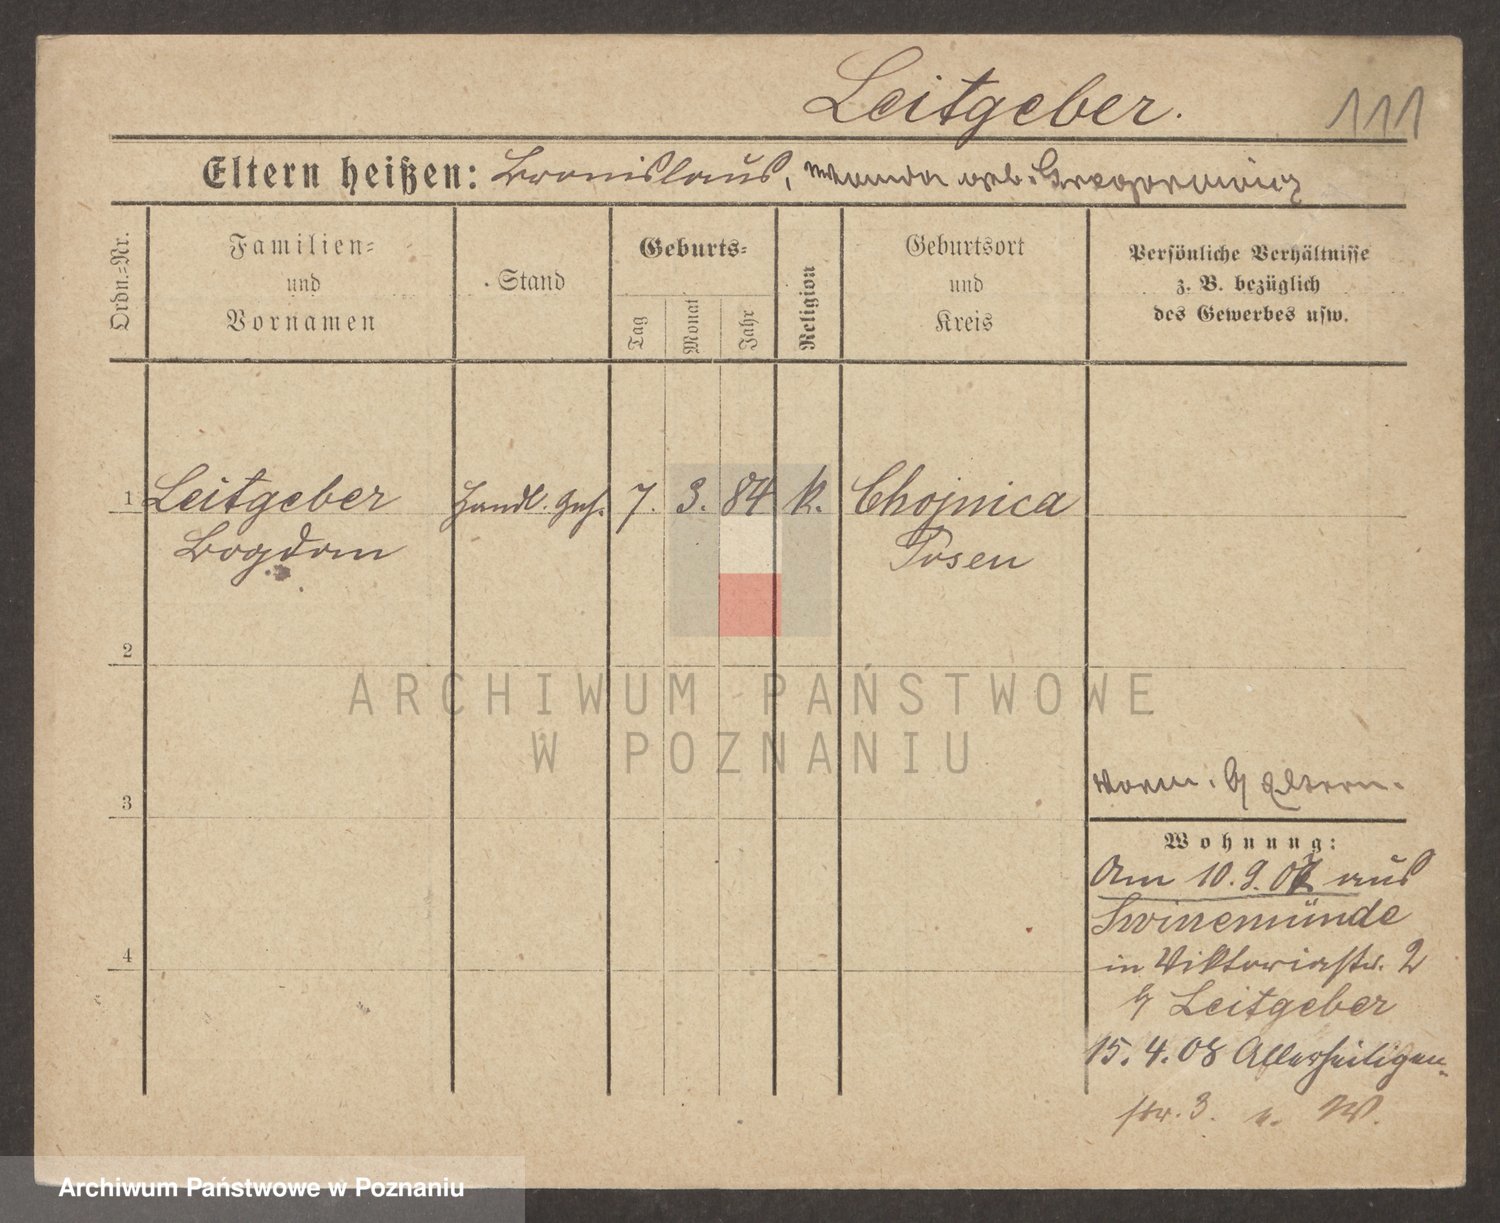 Leitgeber.
111
Eltern heißen: Bronislaus, Wanda geb. Gregorowicz
Ordn.-Nr.
Familien-
und
Vornamen
Stand
Geburts-
Tag
Monat
Jahr
Religion
Geburtsort
und
Kreis
Persönliche Verhältnisse
z. B. bezüglich
des Gewerbes usw.
1 Leitgeber Handl. Geh. 7. 3. 84 k. Chojnica
Bogdan Posen
2
ARCHIWUM PAŃSTWOWE
W POZNANIU
3
vorm. b/ Eltern.
Wohnung:
Am 10.9.07 aus
Swinemünde
in Viktoriastr. 2
b/ Leitgeber
4
15.4.08 Allerheiligen-
str. 3. W.
Archiwum Państwowe w Poznaniu